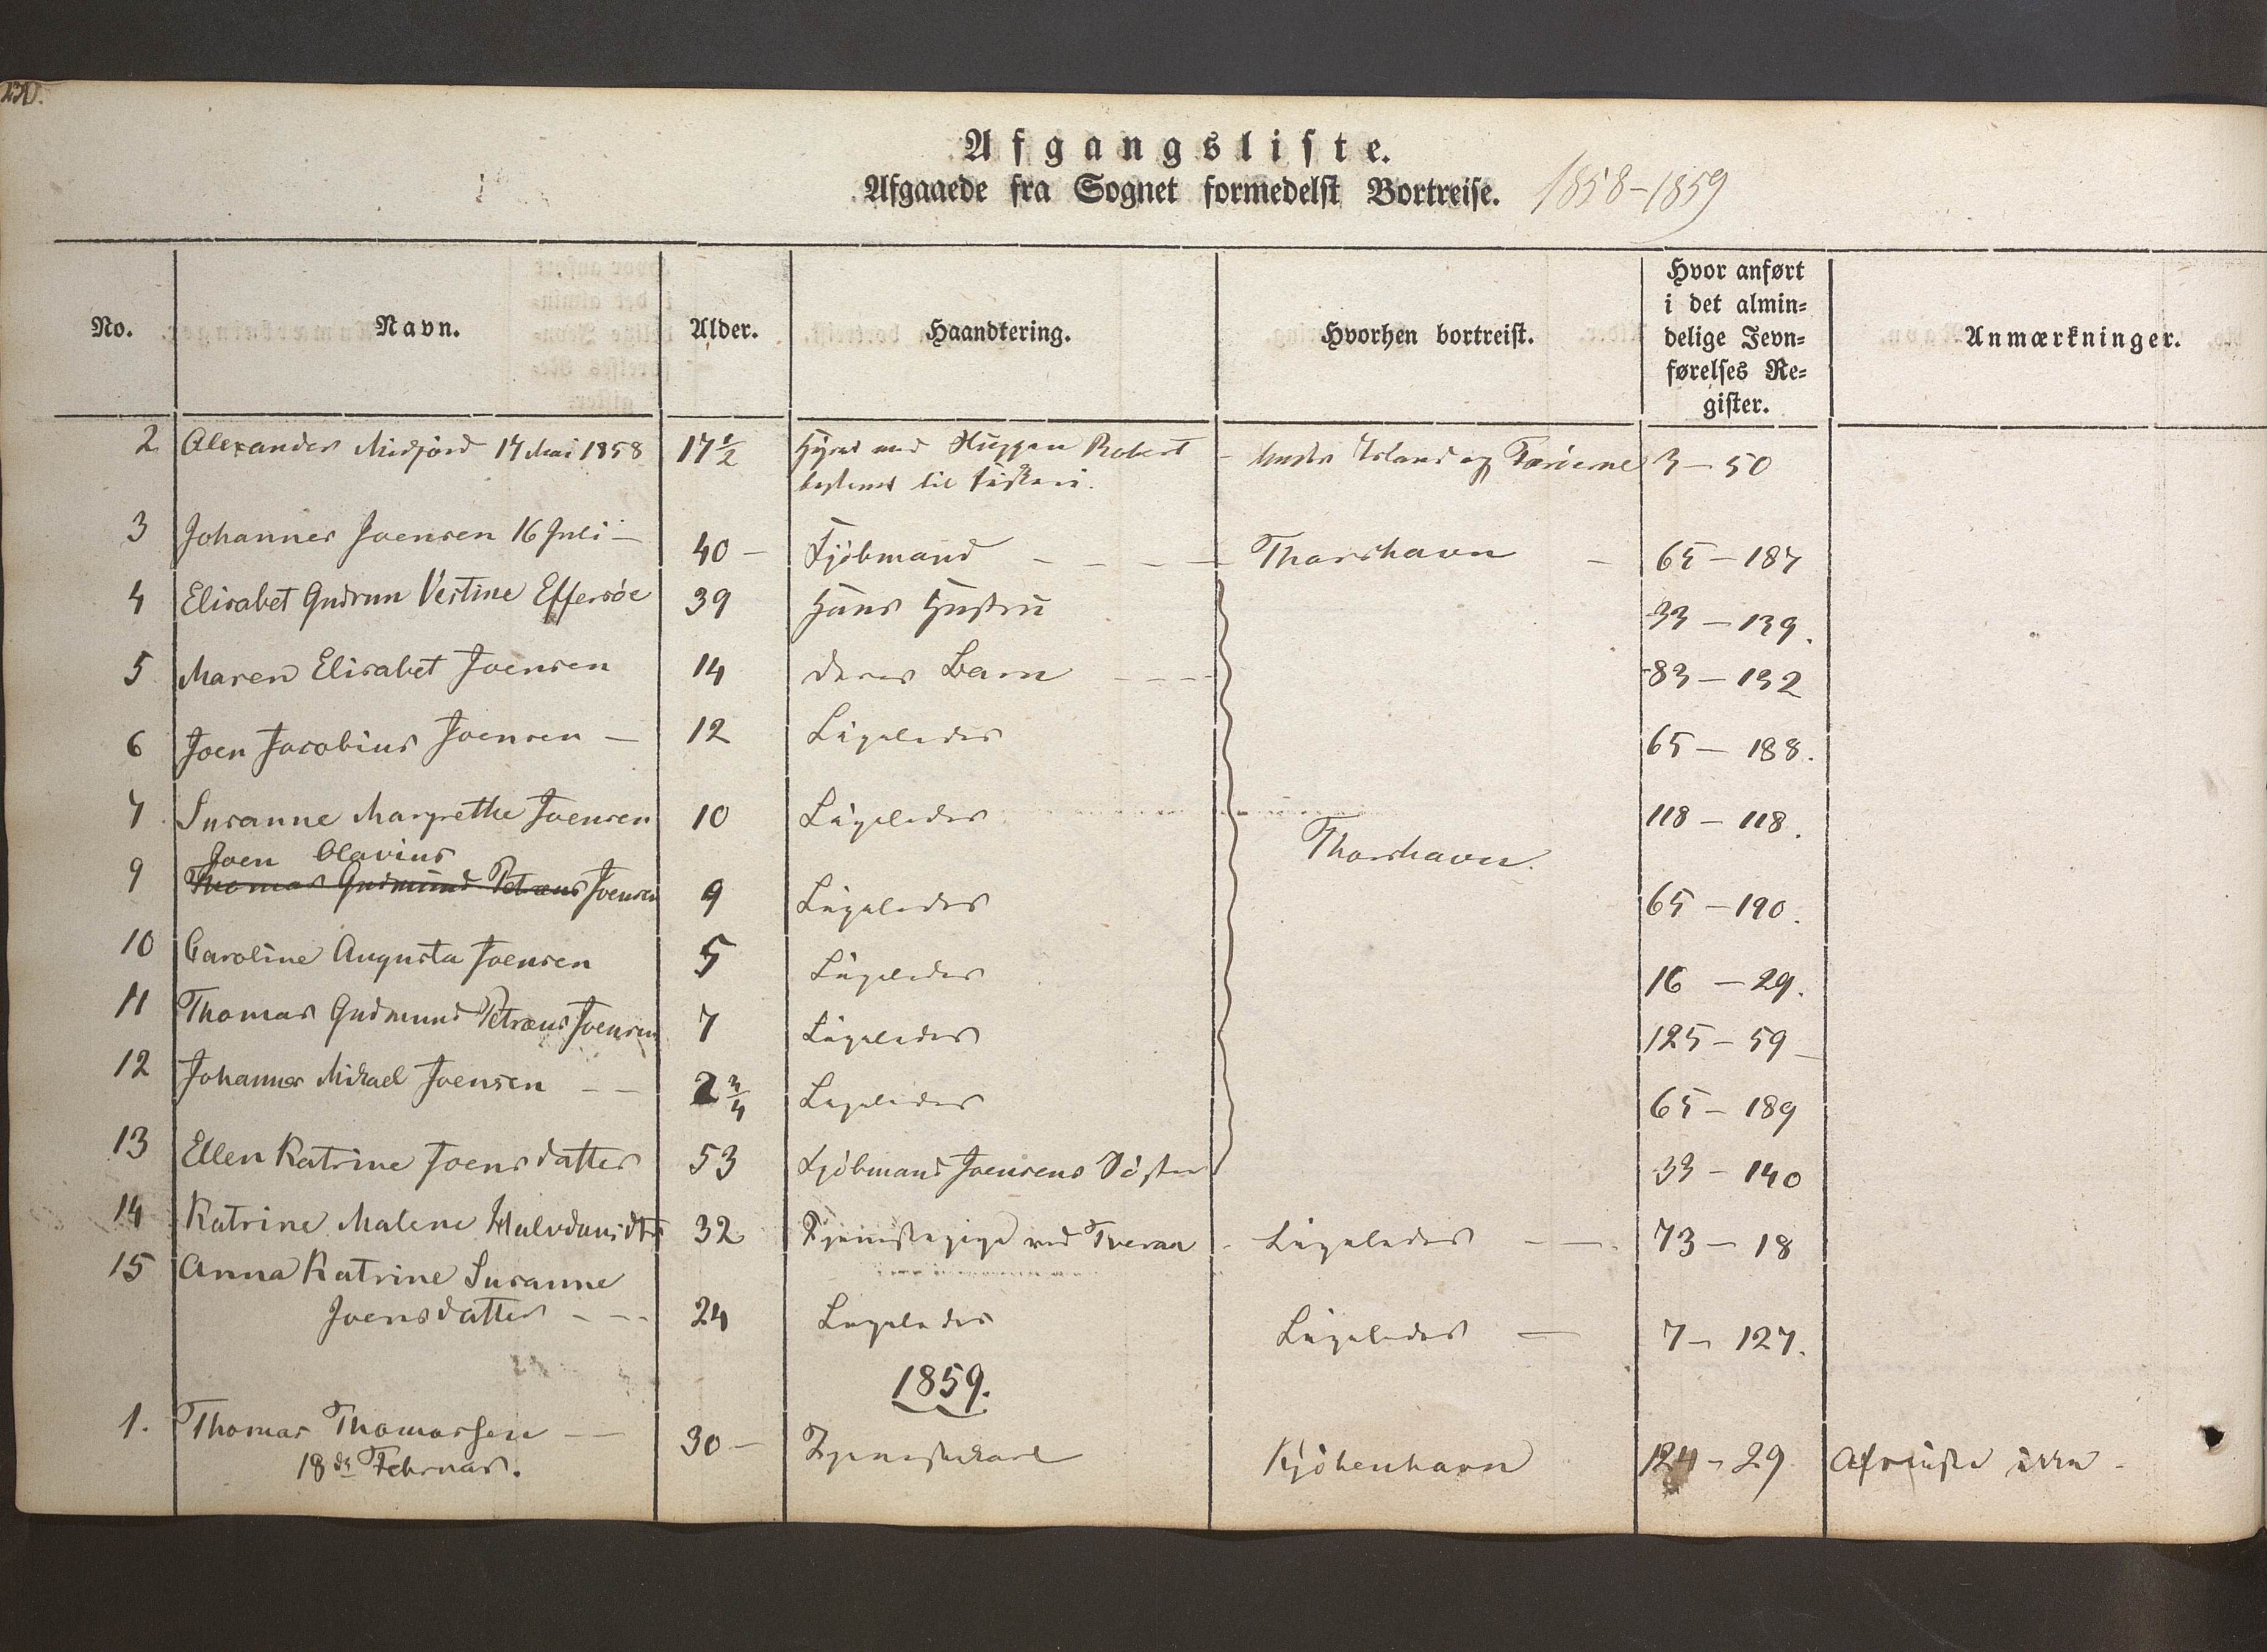 220.
Afgangsliste.
Afgaaede fra Sognet formedelst Bortreise. 1858-1859
No. Navn. Alder. Haandtering. Hvorhen bortreist. Hvor anført i det almin= delige Jevn= førelses Re= gister. Anmærkninger.
2 Alexander Midfjord 17 Mai 1858 17 1/2 Hyret med Sluppen Robert Under Island og Færøerne 3-50
bestemt til Fiskeri.
3 Johannes Joensen 16 Juli — 40 — Kjöbmand - - - - Thorshavn — 65-187
4 Elisabet Gudrun Vestine Effersöe 39 Hans Hustru 33-139.
5 Maren Elisabet Joensen 14 deres Barn - - - 83-132
6 Joen Jacobius Joensen — 12 Ligeledes 65-188.
7 Susanne Margrethe Joensen 10 Ligeledes 118-118.
Joen Olavius Thorshavn.
9 Thomas Gudmund Petræus Joensen 9 Ligeledes 65-190.
10 Caroline Augusta Joensen 5 Ligeledes 16-29.
11 Thomas Gudmund Petræus Joensen 7 Ligeledes 125-59-
12 Johannes Mikael Joensen — — 2 3/4 Ligeledes 65-189
13 Ellen Katrine Joensdatter 53 Kjöbmand Joensens Söster 33-140
14 Katrine Malene Hulvdansdtr 32 Tjenestepige ved Tveraa - Ligeledes — — 73-18
15 Anna Katrine Susanne
Joensdatter - - - 24 Ligeledes Ligeledes — 7-127.
1859.
1. Thomas Thomassen — — 30 — Tjenestekarl Kjöbenhavn 124-29 Afreiste ikke -
18de Februar.